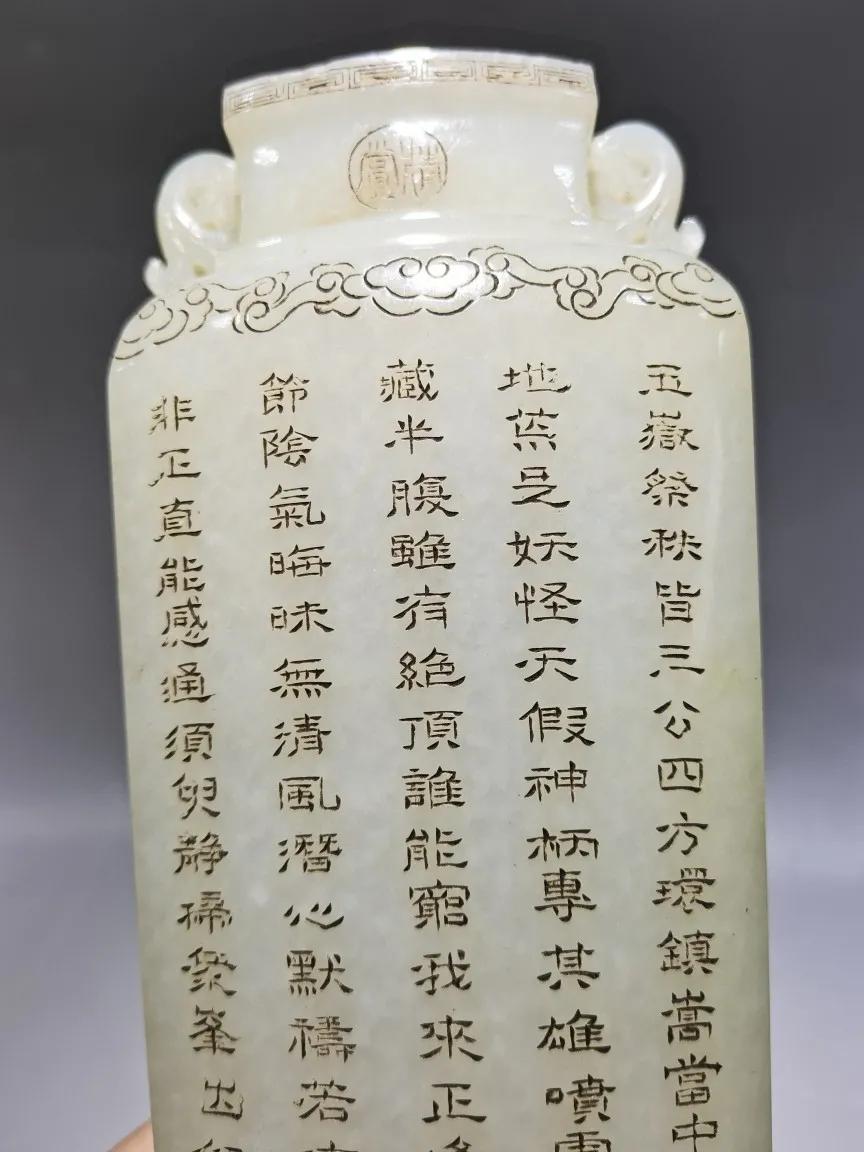 賞
五嶽祭秩皆三公四方環鎮嵩當中
地荒足妖怪天假神柄專其雄噴雲
藏半腹雖有絶頂誰能窮我來正
節陰氣晦昧無清風潛心默禱若
非正直能感通須臾静掃衆峯出